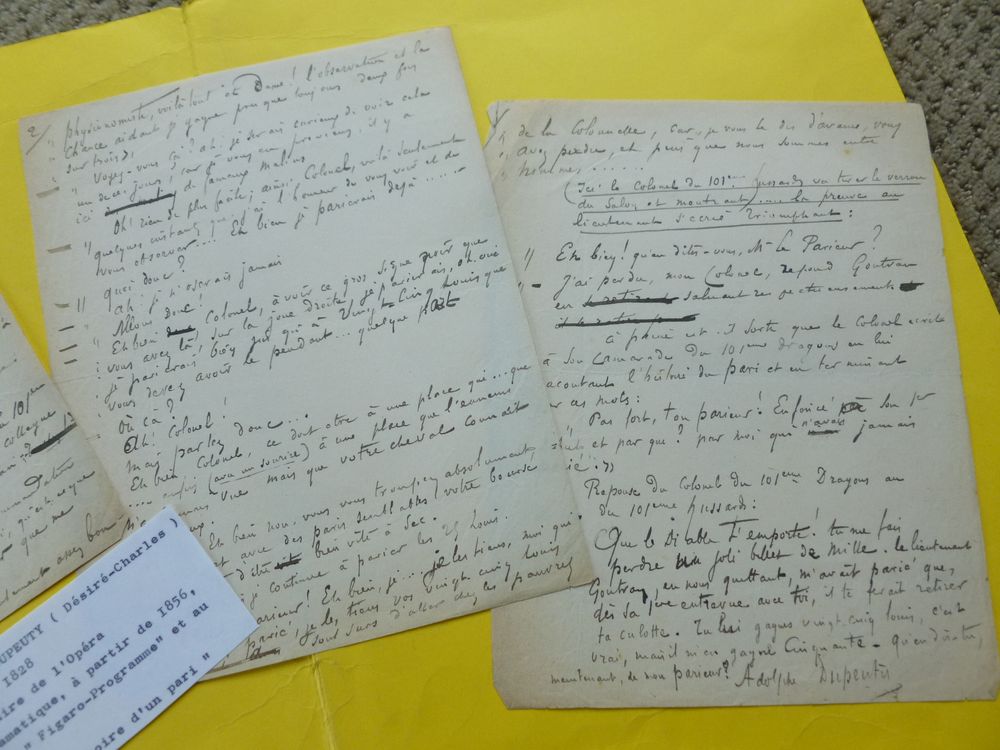 10 peu
collegue
qu'est-ce que
que me
2/ physionomiste, voilà tout et Dame ! l'observation et la
chance aidant je gagne presque toujours deux fois
sur trois,
" Voyez-vous ça ? ah, je serais curieux de voir cela
un de ces jours, car je vous en préviens, il y a
ici de fameux malins
" Oh ! rien de plus facile, ainsi Colonel, voilà seulement
" quelques instants que j'ai l'honneur de vous voir et de
vous observer.... Eh bien je parierais déjà .....
" quoi donc ?
" ah ! je n'oserais jamais
" Allons donc !
" Eh bien, Colonel, à voir ce gros signe noir que
vous avez là, sur la joue droite, je parierais, oh oui
je parierais bien jusqu'à Vingt cinq Louis que
vous devez avoir le pendant... quelque part
Où çà ?
Ah ! Colonel !
Mais parlez donc...
Eh bien, Colonel, ce doit être à une place qui... que
.... enfin (avec un sourire) à une place que l'ennemi
vue mais que votre cheval connait
Eh bien non, vous vous trompez absolument,
et avec des paris semblables votre bourse
d'être bien vite à sec.
je continue à parier les 25 Louis.
parieur ! Eh bien, je.... je les tiens, moi qui
parié, je les tiens vos vingt cinq louis
sous sûrs d'aller chez les pauvres
3/
" de la Colonelle, car, je vous le dis d'avance, vous
" avez perdu, et puis que nous sommes entre
" hommes, .....
(Ici le Colonel du 101eme Hussards va tirer le verrou
du Salon et montrant la preuve au
lieutenant s'écrie Triomphant :
" Eh bien ! qu'en dites-vous, Mr le Parieur ?
" - J'ai perdu, mon Colonel, répond Goutran
en saluant respectueusement
à peine est-il sorti que le Colonel écrit
à son camarade du 101eme dragons en lui
racontant l'histoire du pari et en terminant
par ces mots :
" Pas fort, ton parieur ! Enfoncé son 1er
et par qui ? par moi qui n'avais jamais
parié ! »
Reponse du Colonel du 101eme Dragons au
du 101eme Hussard :
Que le Diable t'emporte ! tu me fais
perdre un joli billet de Mille. le lieutenant
Goutran, en nous quittant, m'avait parié que,
dès sa 1ere entrevue avec toi, il te ferait retirer
ta culotte. Tu lui gagnes vingt cinq louis, c'est
vrai, mais il m'en gagne Cinquante - qu'en dis-tu,
maintenant, de mon parieur ? Adolphe Dupeuty
UPEUTY ( Désiré-Charles )
1828
ire de l'Opéra
amatique, à partir de 1856,
" Figaro-Programme" et au
oire d'un pari "